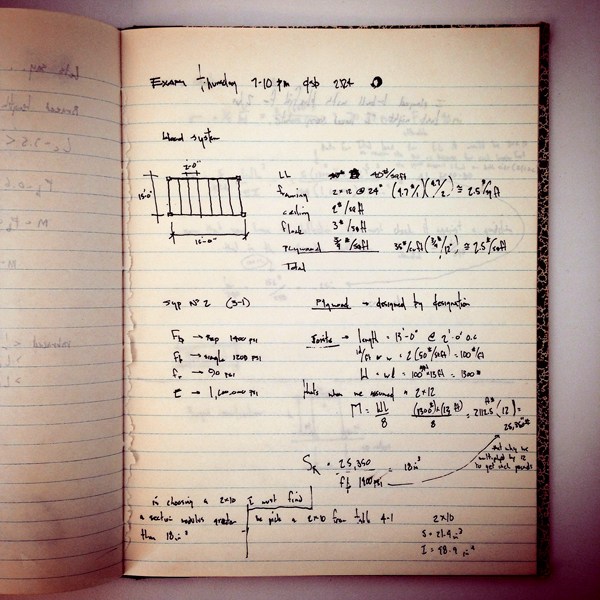 Exam Thursday 7-10 pm dsb 2124
Wood system
2'-0"
13'-0"
16'-0"
LL 40#/sqft
framing 2x12 @ 24" (4.7#/1)(1/2) ≅ 2.5#/sqft
ceiling 2#/sqft
floor 3#/sqft
plywood 36#/cuft (3/4"/12") ≅ 2.5#/sqft
Total
Syp Nº 2 (3-1)
Plywood → designed by designation
Fb → rep 1400 PSI
Fb → single 1200 PSI
fv → 90 PSI
E → 1,600,000 PSI
Joists → length = 13'-0" @ 2'-0" o.c
#/ft or w = 2(50#/sqft) = 100#/ft
W = wl = 100#/ft 13ft = 1300#
that's when we assumed a 2x12
M = WL/8 (1300#)(13 ft)/8 = 2112.5 ft# (12) =
25,350"#
that why we
multiplied by 12
to get inch pounds
SR = 25,350 / fb 1400 PSI = 18in³
in choosing a 2x10 I must find
a section modulus greater
than 18in³
we pick a 2x10 from table 4-1
2x10
S = 21.4in³
I = 98.9in⁴